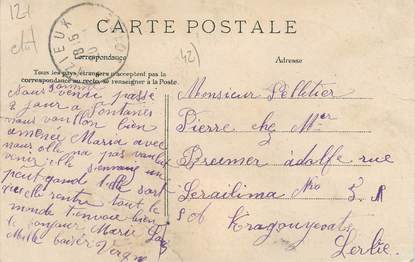 121
CARTE POSTALE
42)
Correspondance
Adresse
Tous les pays étrangers n'acceptent pas la
correspondance au recto, se renseigner à la Poste.
Nous sommes venu passé
2 jour a Fontanès
nous voullon bien
amenée Maria avec
nous elle na pas voullu
venir elle sennuie un
peut quand elle sort
elle rentre tout le
monde tenvoie bien
le bonjour Marie
Mille baisér Vergne
Monsieur Pelletier
Pierre chez Mer
Breimer adolfe rue
Seraïlima Nro 5. A
Kragouyevats
Serbie.